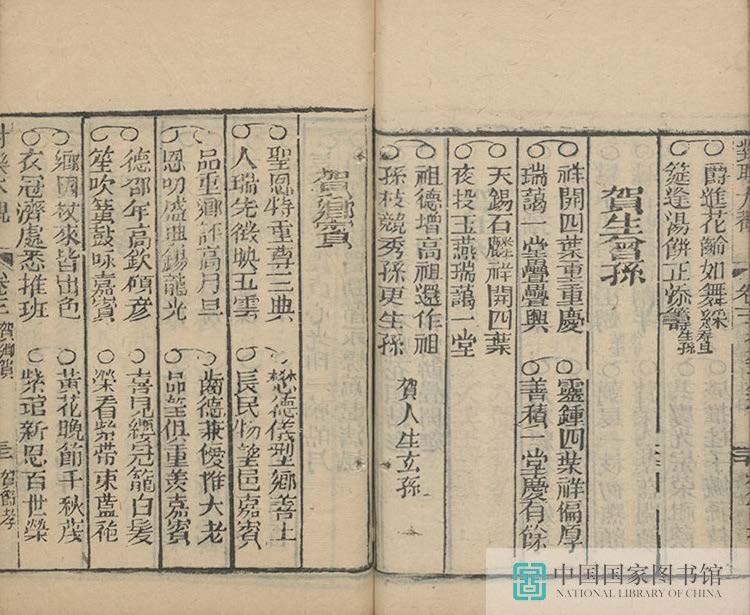 爵進花齡如舞綵
筵逢湯餅正添籌 生孫
賀生曾孫
祥開四葉重重慶
靈鍾四葉祥偏厚
瑞藹一堂疊疊興
善積一堂慶有餘
天錫石麟祥開四葉
夜投玉燕瑞藹一堂
祖德增高祖還作祖
賀人生玄孫
孫枝競秀孫更生孫
賀鄉賓
聖恩特重尊三典
懋德儀型鄉善士
人瑞先徵映五雲
長民物望邑嘉賓
品重鄉評高月旦
齒德兼優推大老
恩叨盛典錫龍光
品望俱重羨嘉賓
德卲年高欽碩彥
喜見纓冠籠白髮
笙吹簧鼓咏嘉賓
榮看紫帶束藍袍
鄉國杖來皆出色
黃花晚節千秋茂
衣冠濟處悉推班
紫綍新恩百世榮
大觀 卷三 賀鄉賓 賀節孝
中国国家图书馆
NATIONAL LIBRARY OF CHINA